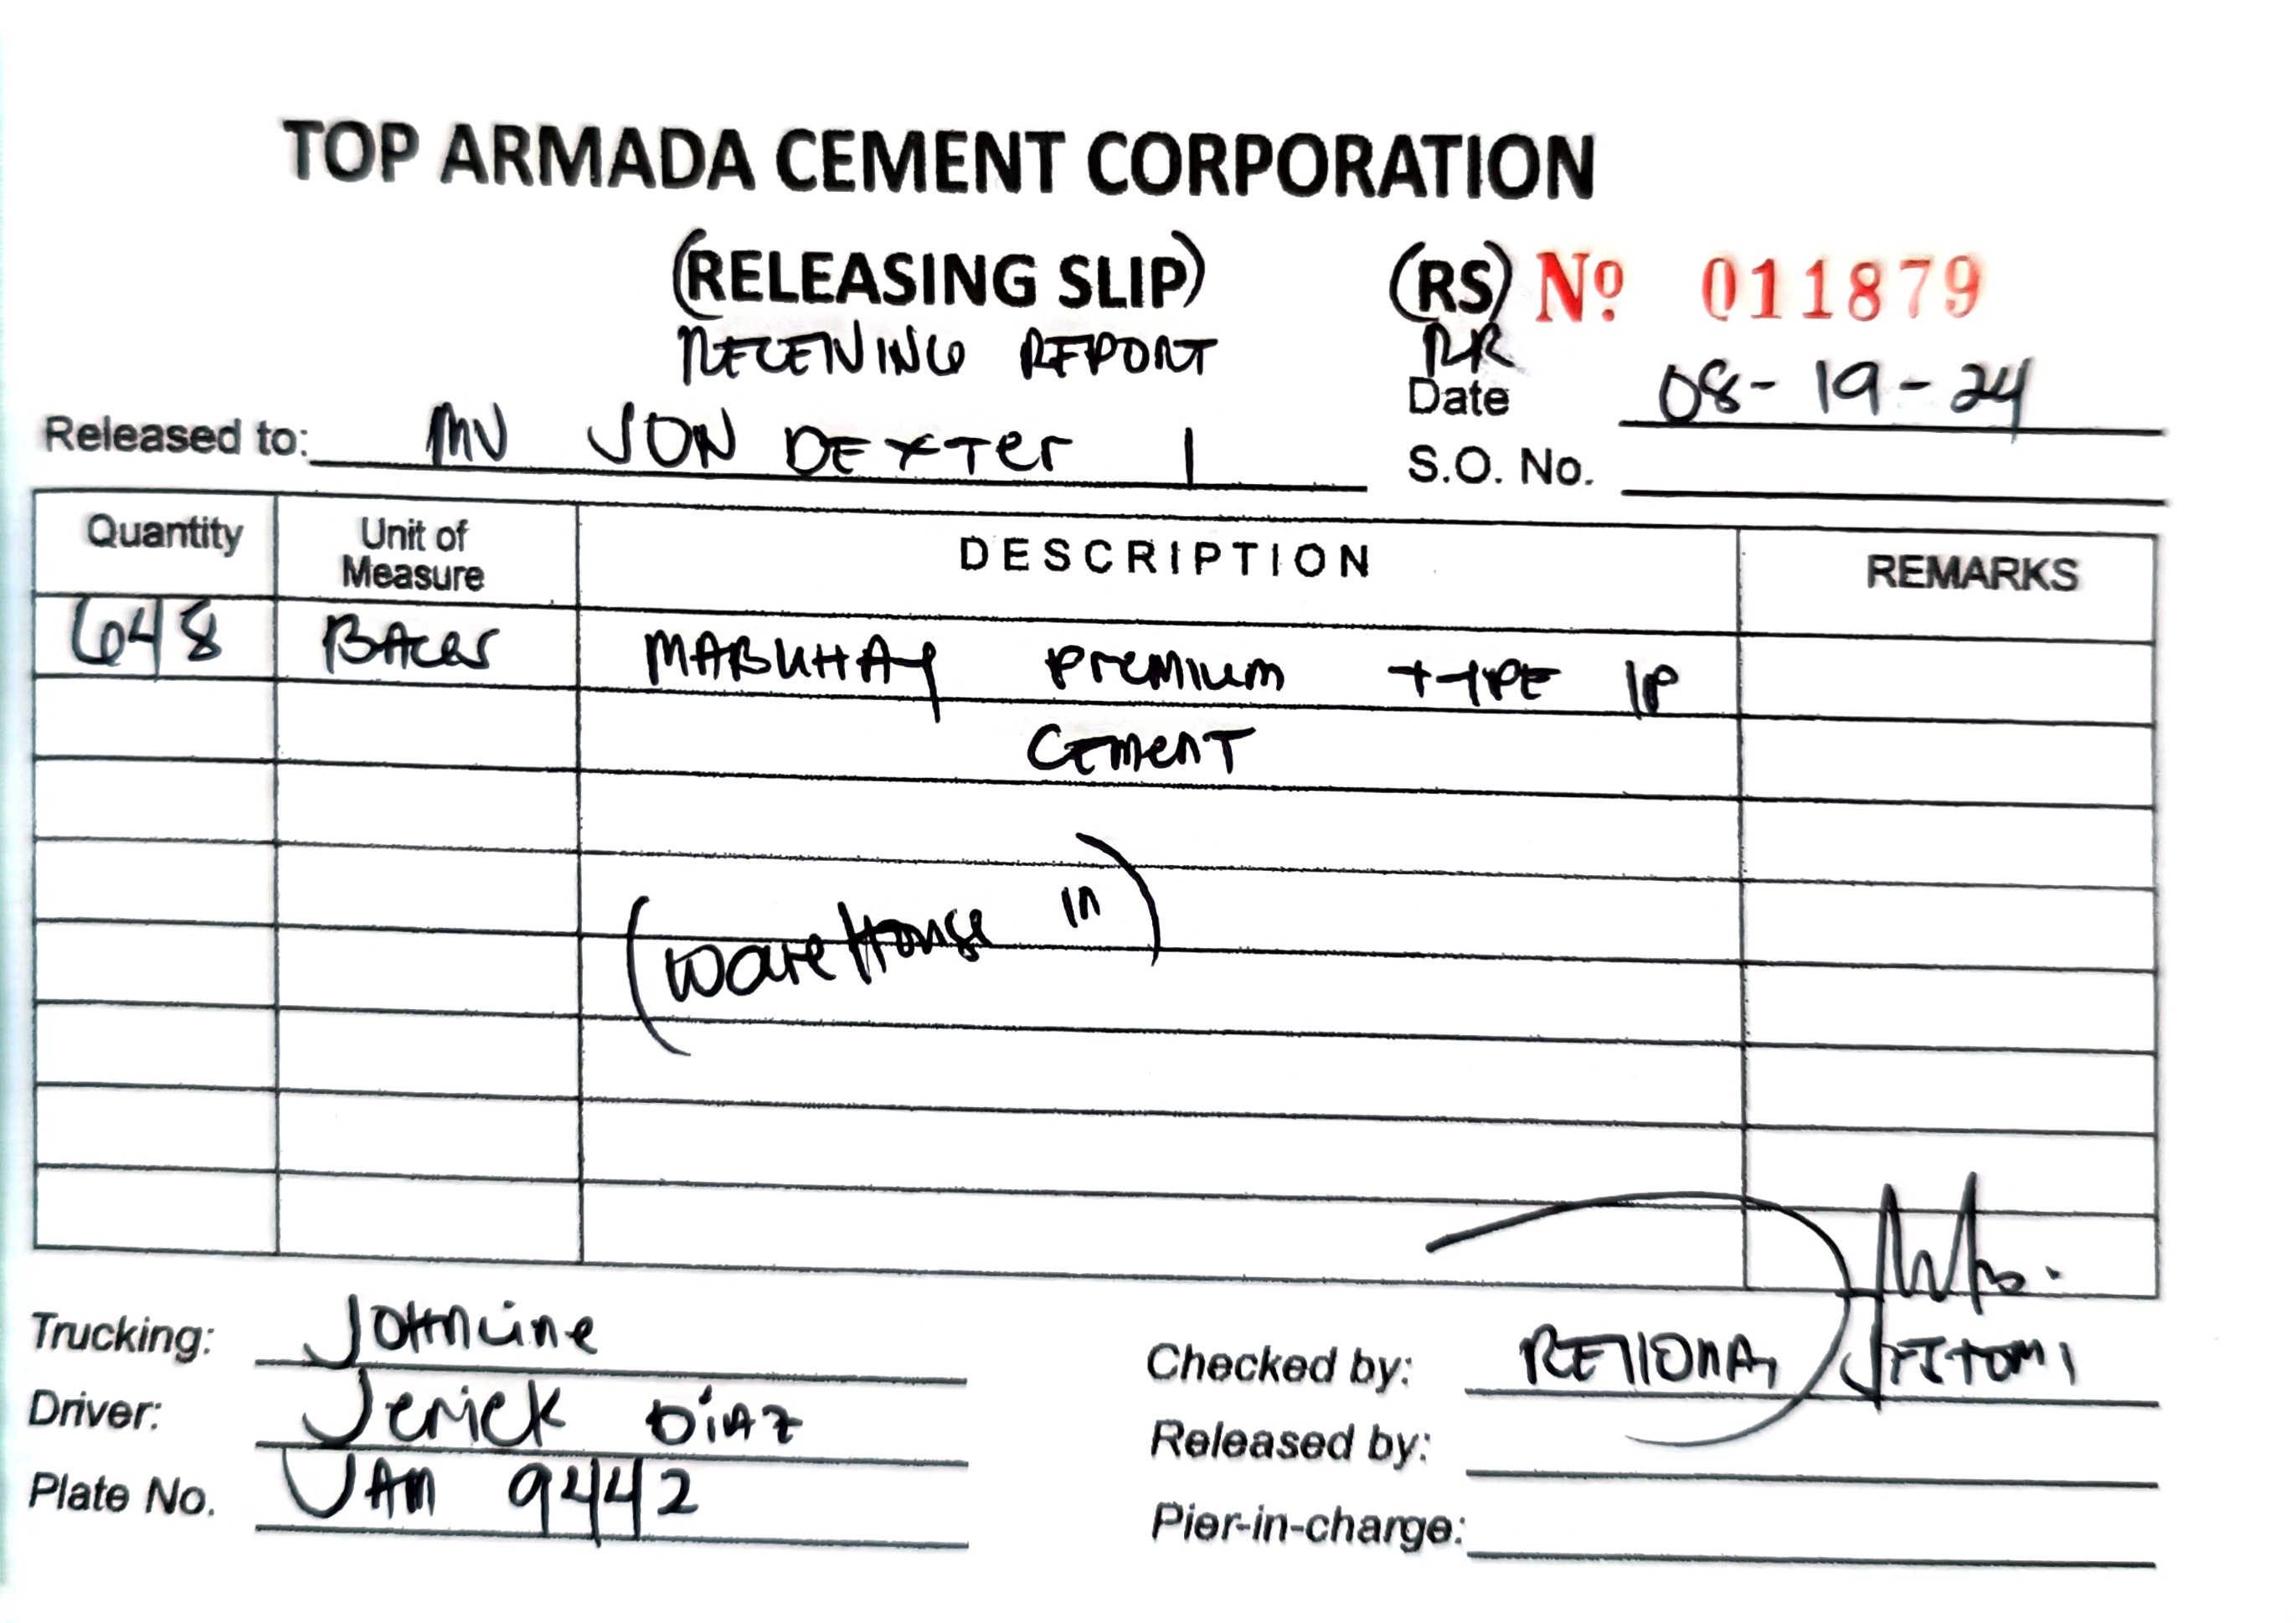 TOP ARMADA CEMENT CORPORATION
(RELEASING SLIP) (RS) Nº 011879
RECEIVING REPORT RR
Date 08-19-24
Released to: MV JON DEXTER 1
S.O. No.
Quantity Unit of Measure DESCRIPTION REMARKS
648 BAGS MABUHAY PREMIUM TYPE 1P
CEMENT
(WareHouse in)
Trucking: JOHNLINE
Checked by:
Driver: Jerick DiAZ
Released by:
Plate No. UAM 9442
Pier-in-charge: